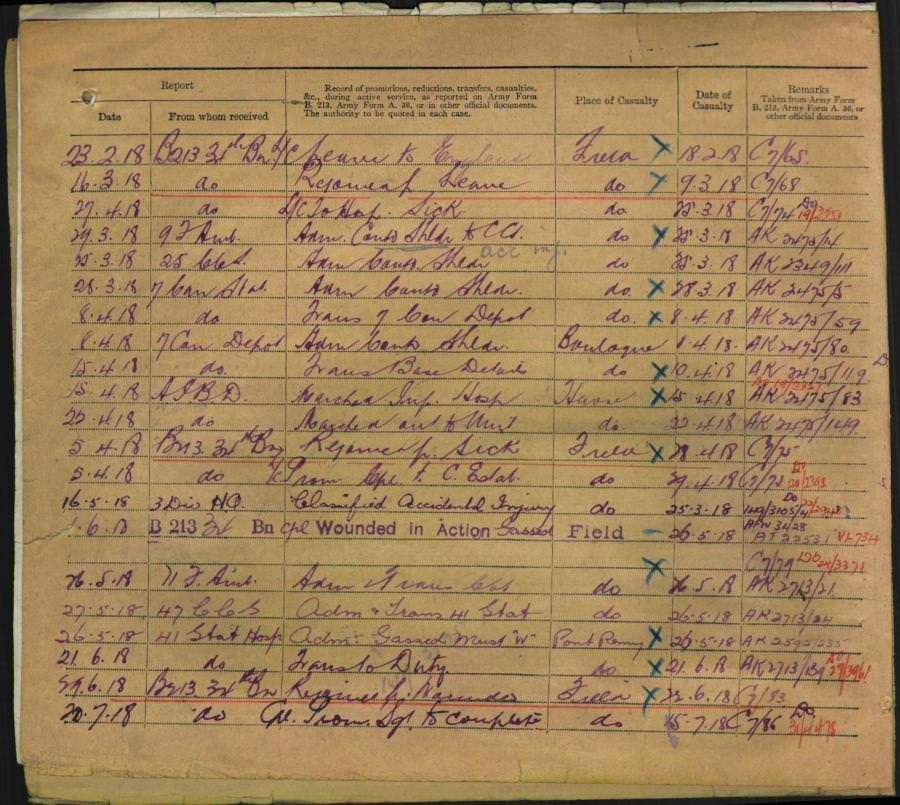 Report
Record of promotions, reductions, transfers, casualties,
&c., during active service, as reported on Army Form
B. 213, Army Form A. 36, or in other official documents.
The authority to be quoted in each case.
Place of Casualty
Date of
Casualty
Remarks
Taken from Army Form
B. 213, Army Form A. 36, or
other official documents
Date
From whom received
23.2.18 B213 34th Bn L/C Leave to England Field 18.2.18 C7/65
16.3.18 do Rejoined f. Leave do 9.3.18 C7/68
27.4.18 do L/C To Hosp. Sick do 25.3.18 C7/74
29.3.18 9 F Amb. Adm. Conts Shldr to CCS. do 25.3.18 AK 2475/4
acc inj.
25.3.18 25 CCS. Adm Conts Shldr do 25.3.18 AK 2349/111
28.3.18 7 Can Stat Adm Conts Shldr. do. 28.3.18 AK 2475/5
8.4.18 do Trans 7 Con Depot do. 8.4.18 AK 2475/59
8.4.18 7 Con Depot Adm Conts Shldr. Boulogne 8.4.18 AK 2475/80.
15.4.18 do. Trans Base Details do 10.4.18 AK 2475/119
15.4.18 A I B D. Marched In f. Hosp Havre 15.4.18 AK 2475/83
22.4.18 do Marched out to Unit do. 22.4.18 AK 2475/149
5.4.18 B213 34th Bn Rejoined f. Sick Field 4.18 C7/75
5.4.18 do L/C Prom Cpl. t. C. Estab. do 29.4.18 C7/75
16-5-18 3 Div HQ. Classified Accidental Injury do 25-3-18
6.18 B 213 34 Bn Cpl Wounded in Action Gassed Field 26-5-18 AFW 3428
C7/79
26.5.18 11 F. Amb. Adm Trans CCS do 26.5.18 AK 2713/21
27-5-18 47 CCS Adm & Trans 41 Stat do 26-5-18 AK 2713/24
26-5-18 41 Stat Hosp Adm. Gassed Must "W" Pont Remy 26-5-18 AK 2592/235
21.6.18 do Trans to Duty do 21.6.18 AK 2713/139
29.6.18 B213 34th Bn Rejoined f. Wounds Field 22.6.18 C7/83
20.7.18 do Cpl. Prom. Sgt to complete do 15.7.18 C7/86